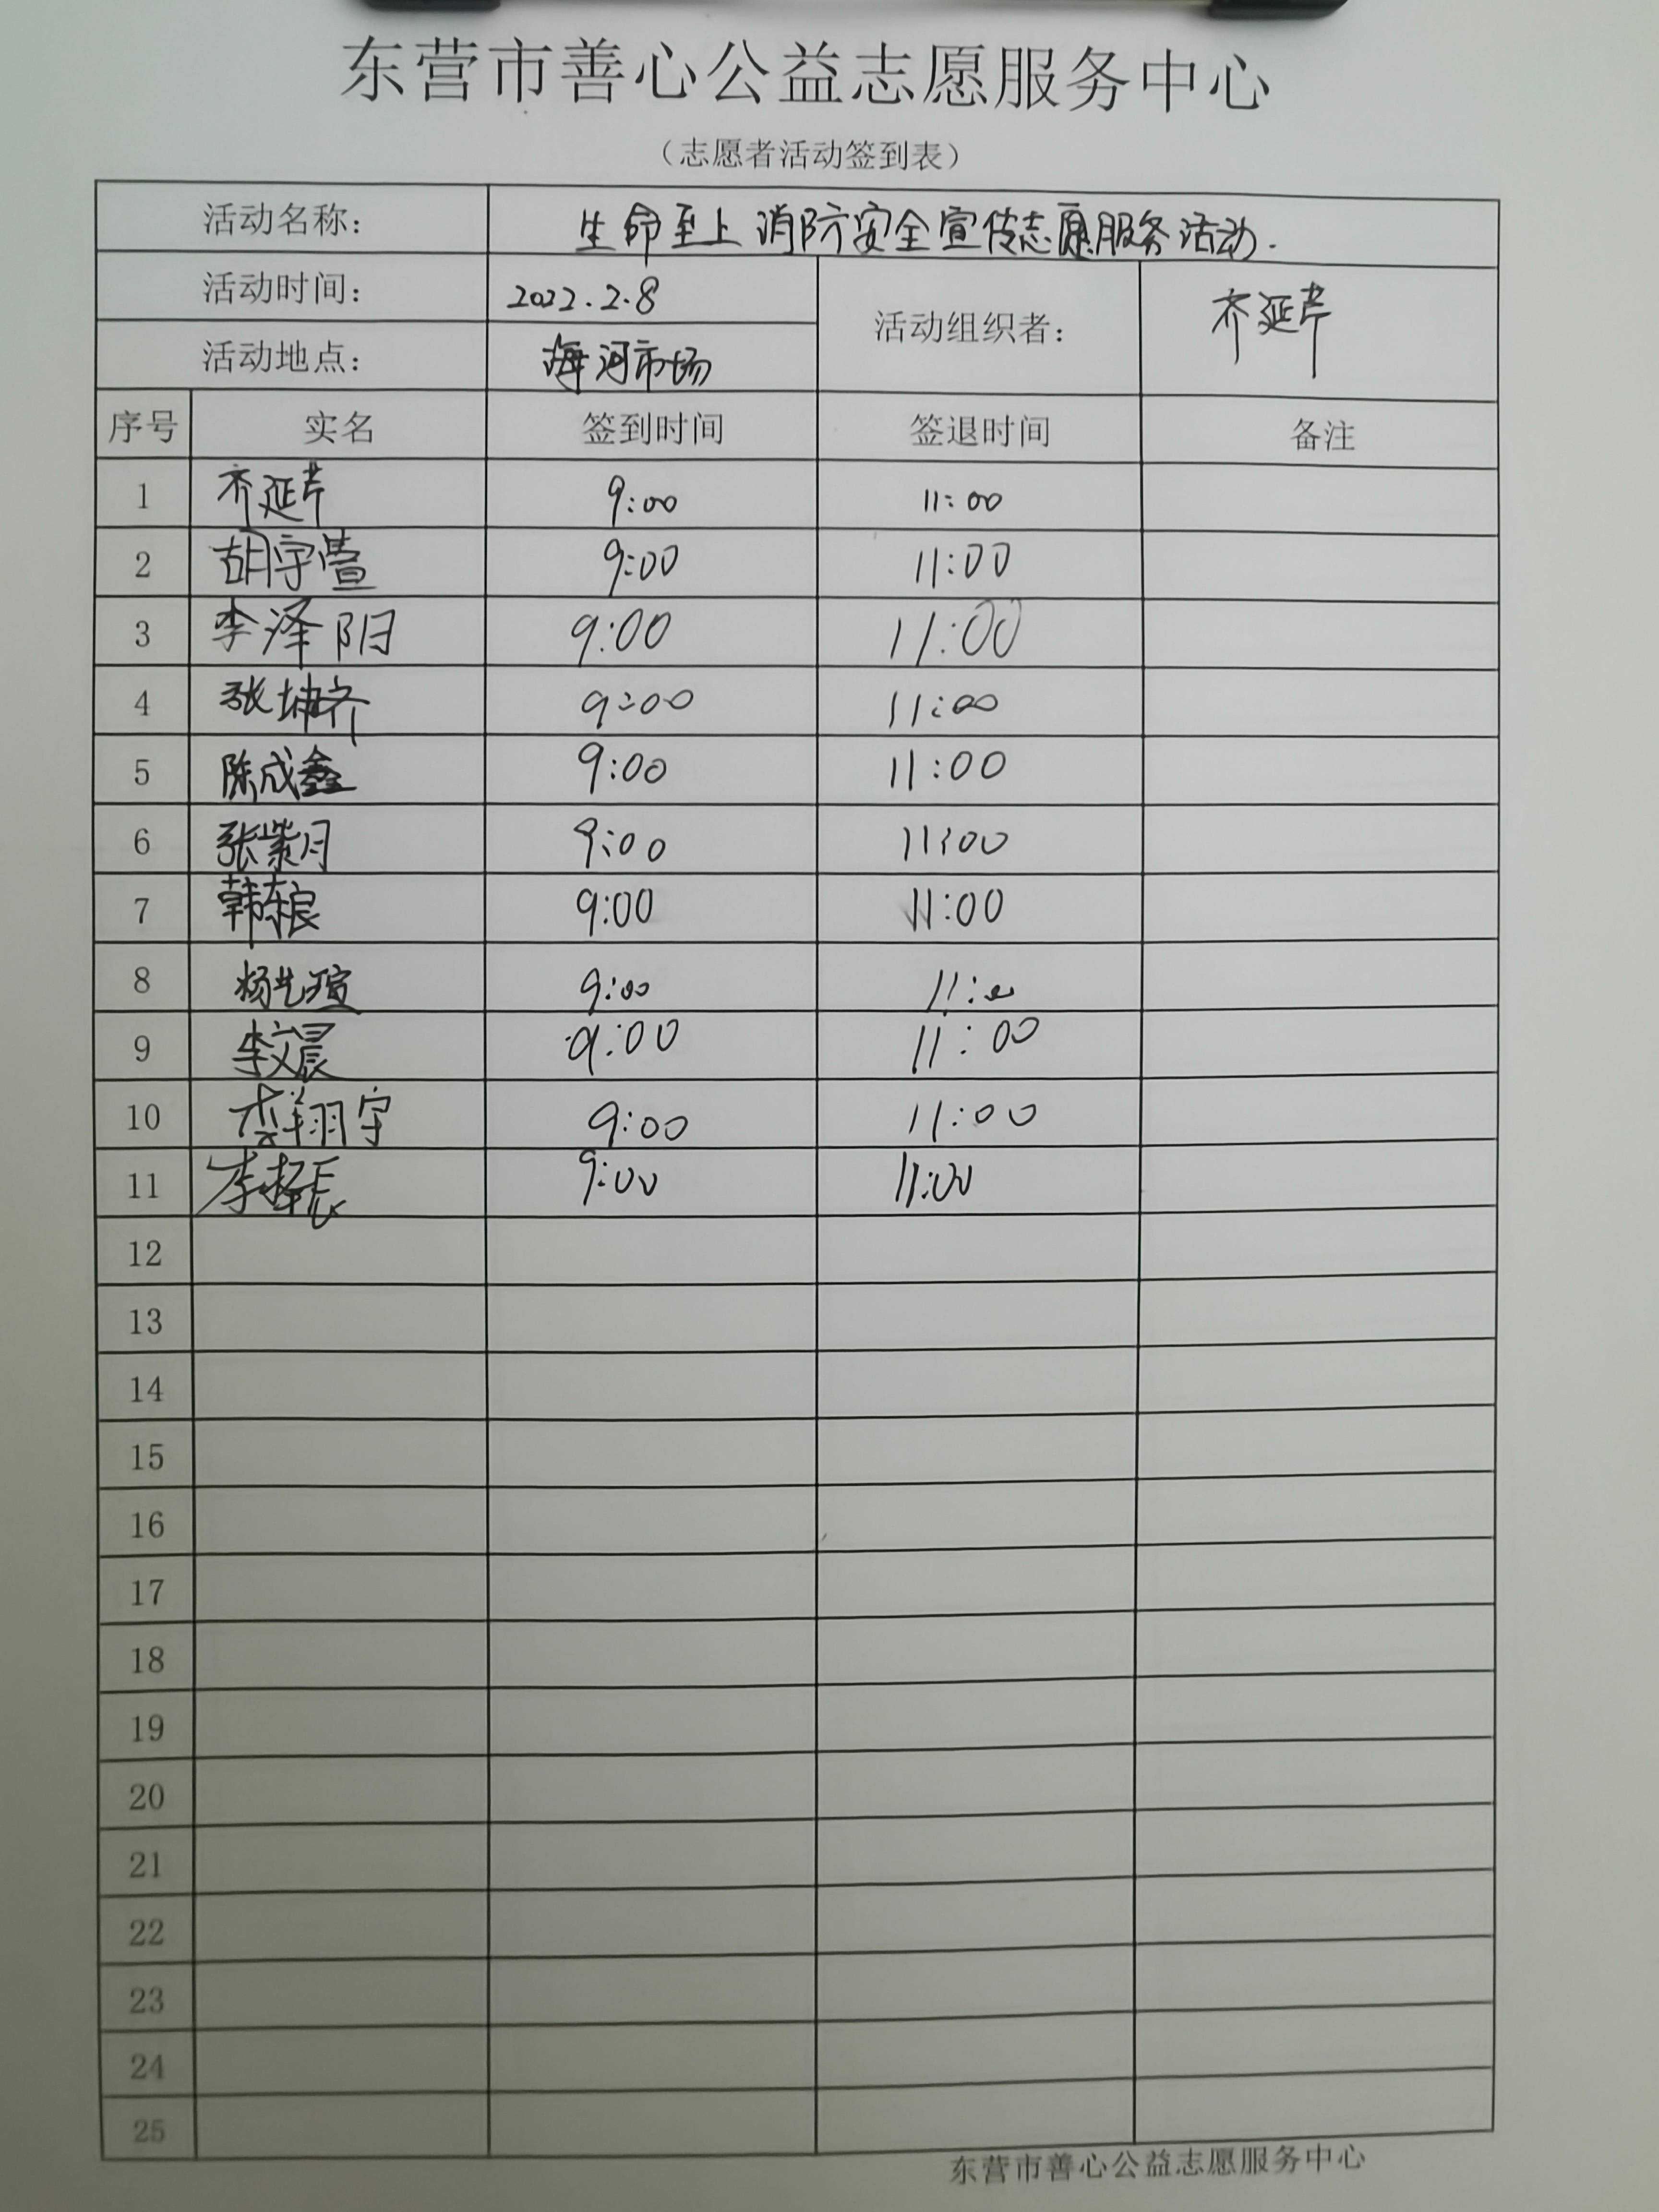 东营市善心公益志愿服务中心
（志愿者活动签到表）
活动名称： 生命至上消防安全宣传志愿服务活动.
活动时间： 2022.2.8 活动组织者： 齐延芹
活动地点： 海河市场
序号 实名 签到时间 签退时间 备注
1 齐延芹 9:00 11:00
2 胡宇萱 9:00 11:00
3 李泽阳 9:00 11:00
4 张坤齐 9:00 11:00
5 陈成鑫 9:00 11:00
6 张紫月 9:00 11:00
7 韩东良 9:00 11:00
8 杨艺瑄 9:00 11:00
9 李文晨 9:00 11:00
10 李翔宇 9:00 11:00
11 李 9:00 11:00
12
13
14
15
16
17
18
19
20
21
22
23
24
25
东营市善心公益志愿服务中心